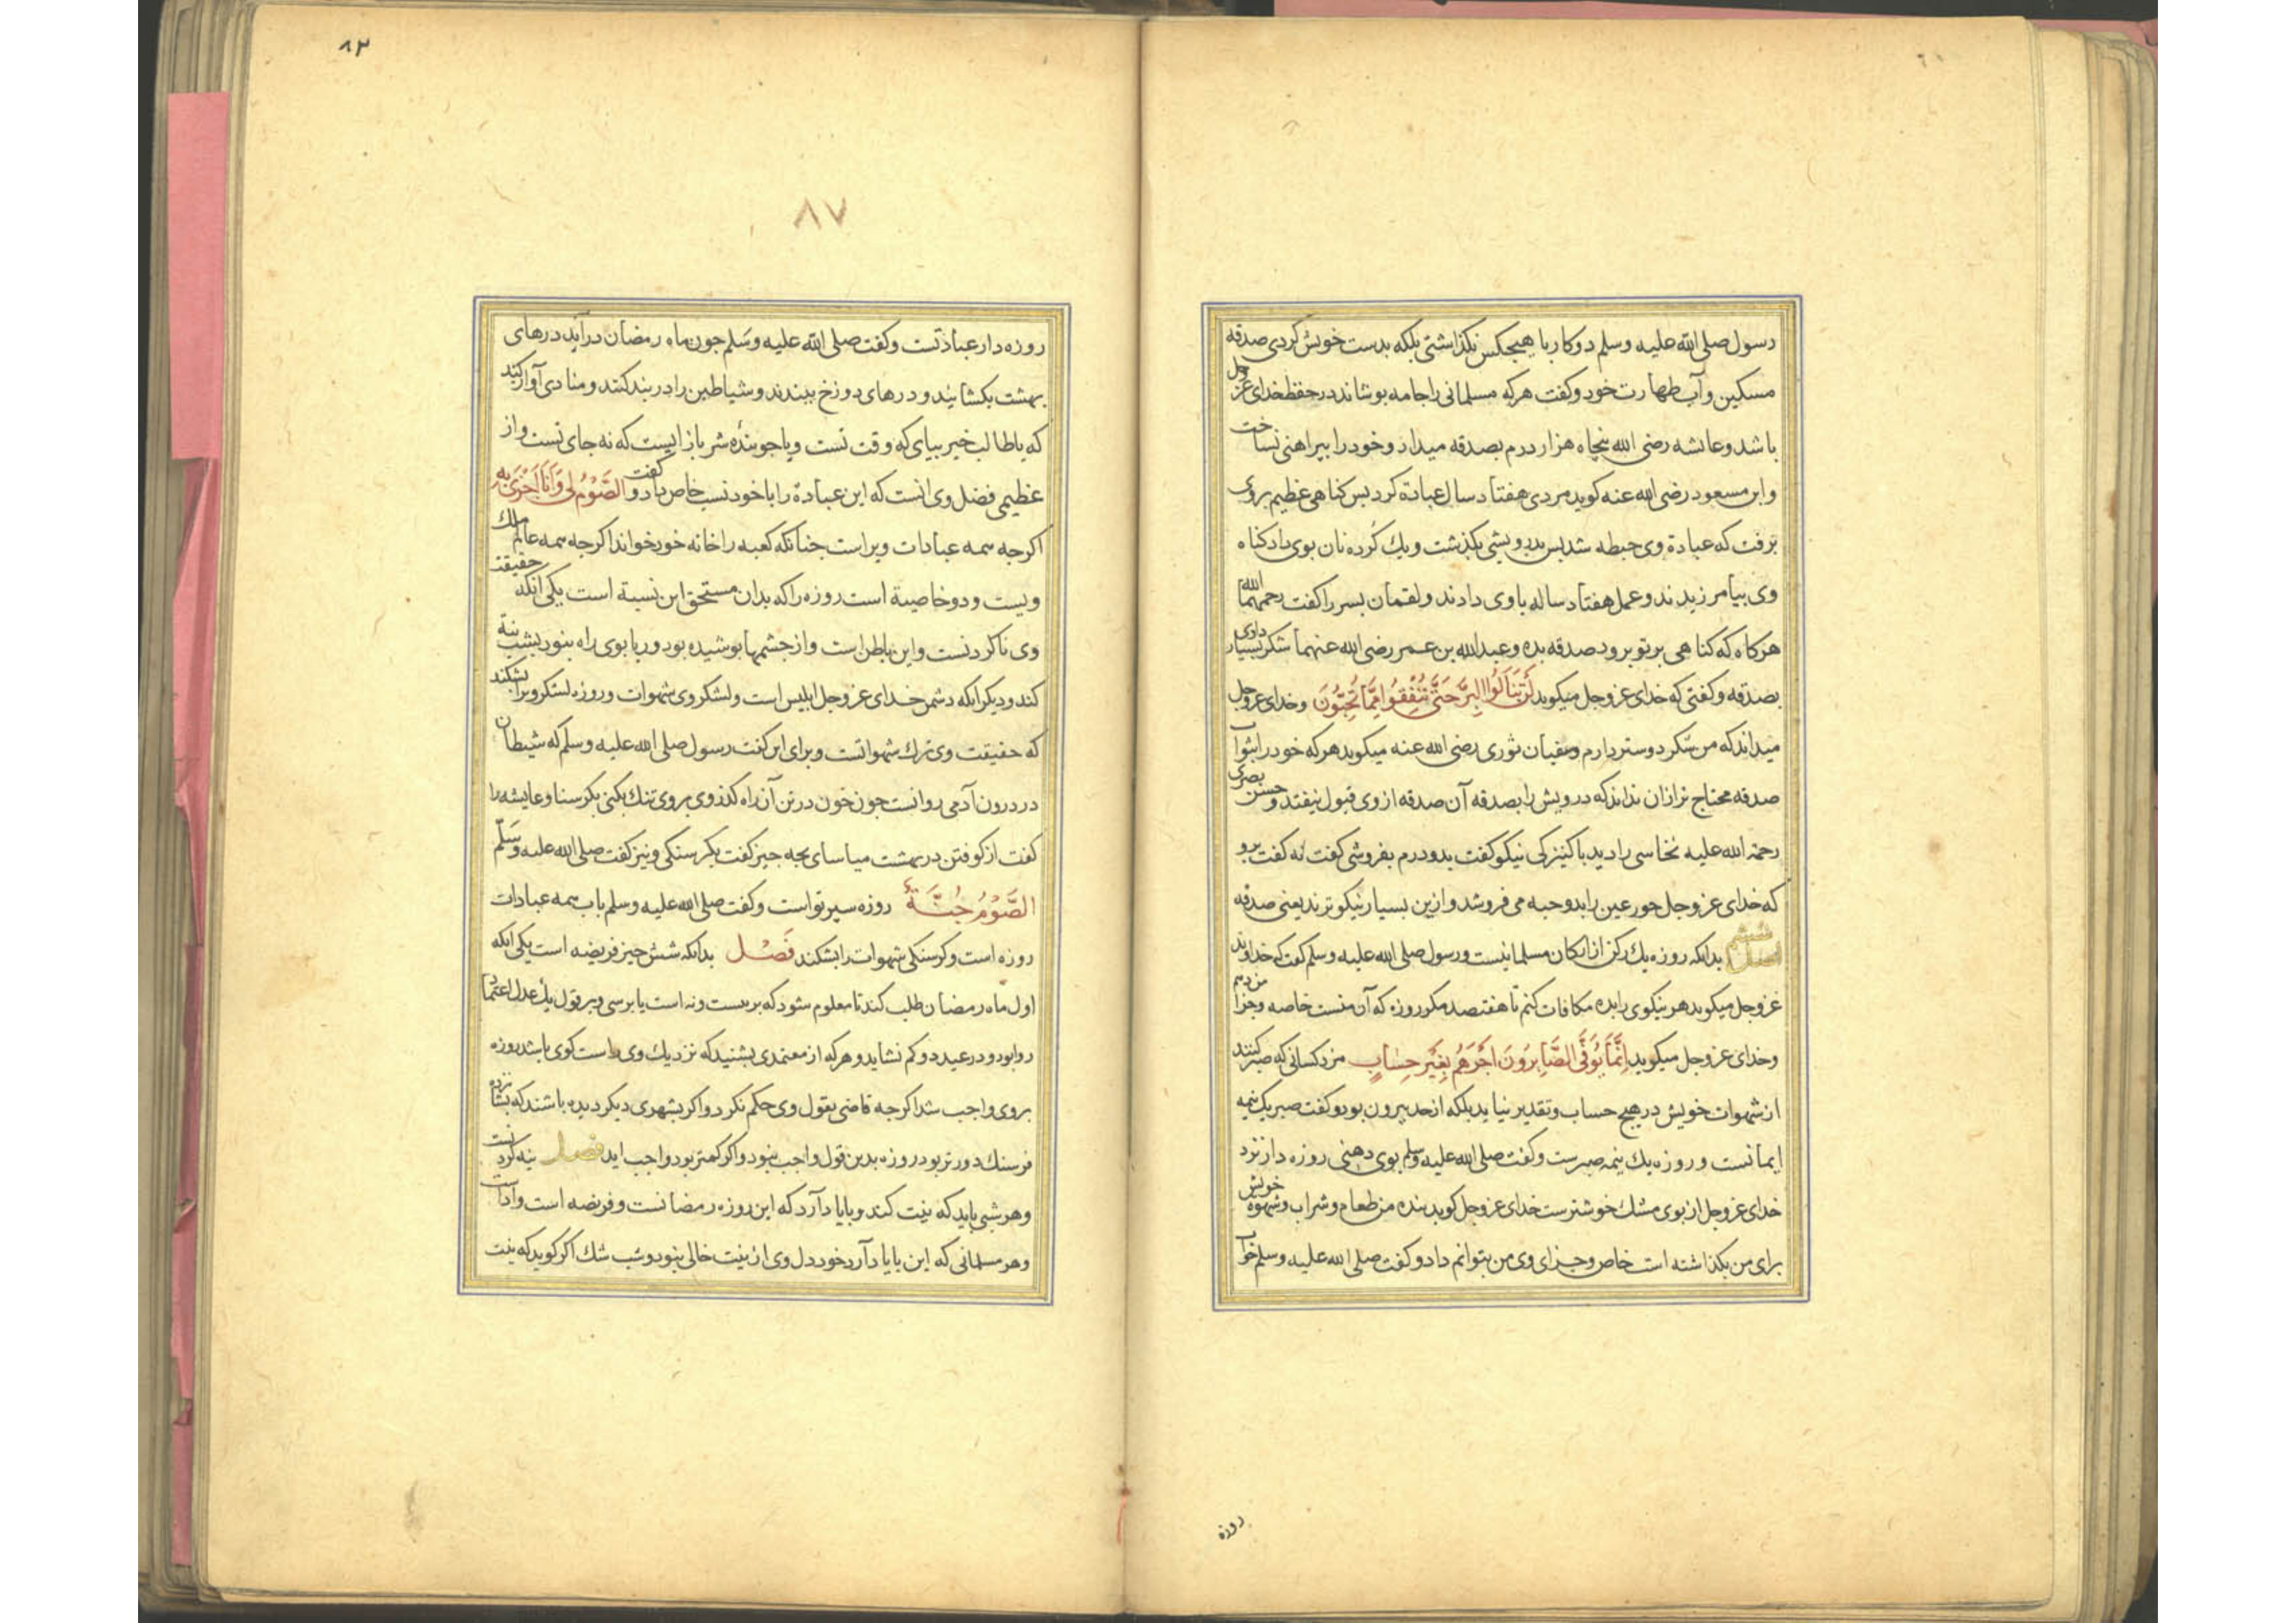 رسول صلی الله علیه وسلم دو کار با هیچکس نگذاشتی بلکه بدست خویش کردی صدقه
مسکین وآب طهارت خود وکفت هرکه مسلمانی را جامه بوشاند در حفظ خدای عز وجل
باشد وعایشه رضی الله پنجاه هزار درم بصدقه میداد وخود را بیراهنی نساخت
وابن مسعود رضی الله عنه کوید مردی هفتاد سال عبادة کرد بس کناهی عظیم بروی
برفت که عبادة وی حبطه شد بس بدرویشی بکذشت ویك کرده نان بوی داد کناه
وی بیامرزیدند وعمل هفتاد ساله باوی دادند ولقمان بسر را کفت رحمهما الله
هرکاه که کناهی بر تو برود صدقه بده وعبدالله بن عمر رضی الله عنهما شکر بسیار دادی
بصدقه وکفتی که خدای عز وجل میکوید لَنْ تَنَالُوا الْبِرَّ حَتَّى تُنْفِقُوا مِمَّا تُحِبُّونَ وخدای عز وجل
میداند که من شکر دوستر دارم وسفیان ثوری رضی الله عنه میکوید هرکه خود را بثواب
صدقه محتاج تر ازان نداند که درویش را بصدقه آن صدقه از وی قبول نیفتد وحسن بصری
رحمة الله علیه نخاسی را دید با کنیزکی نیکو کفت بدو درم بفروشی کفت نه کفت برو
که خدای عز وجل حور عین را بدو حبه می فروشد وازین بسیار نیکوترند یعنی صدقه
اصل ششم بدانکه روزه یك رکن از ارکان مسلمانیست ورسول صلی الله علیه وسلم کفت که خداوند
عز وجل میکوید هر نیکوی را بده مکافات کنم تا هفتصد مکر روزه که آن منست خاصه وجزا من دهم
وخدای عز وجل میکوید اِنَّمَا يُوَفَّى الصَّابِرُونَ اَجْرَهُمْ بِغَيْرِ حِسَابٍ مزد کسانی که صبر کنند
از شهوات خویش در هیچ حساب وتقدیر نیاید بلکه از حد بیرون بود وکفت صبر یك نیمه
ایمانست وروزه یك نیمه صبرست وکفت صلی الله علیه وسلم بوی دهنی روزه دار نزد
خدای عز وجل از بوی مشك خوشترست خدای عز وجل کوید بنده من طعام وشراب وشهوة خویش
برای من بکذاشته است خاص وجزای وی من بتوانم داد وکفت صلی الله علیه وسلم خواب
روزه
۸۳
۸۷
روزه دار عبادتست وکفت صلی الله علیه وسلم جون ماه رمضان درآید درهای
بهشت بکشایند ودرهای دوزخ ببندند وشیاطین را در بند کنند ومنادی آواز کند
که یا طالب خیر بیای که وقت تست ویا جوینده شر باز ایست که نه جای تست واز
عظیمی فضل وی انست که این عبادة را با خود نسب خاص داد وکفت الصَّوْمُ لِي وَاَنَا اَجْزِي بِهِ
اکرجه همه عبادات ویراست جنانکه کعبه را خانه خود خواند اکرجه همه عالم ملك
ویست ودو خاصیة است روزه را که بدان مستحق این نسبة است یکی انکه حقیقت
وی ناکردنست واین باطن است واز جشمها بوشیده بود وریا بوی راه نبود
کند ودیکر انکه دشمن خدای عز وجل ابلیس است ولشکر وی شهوات وروزه لشکر ویرا بشکند
که حقیقت وی ترك شهواتست وبرای این کفت رسول صلی الله علیه وسلم که شیطان
در درون آدمی روانست جون خون در تن آن راه کذر وی بروی تنك بکنی بکرسنا وعایشه را
کفت از کوفتن در بهشت میاسای بجه جیز کفت بکرسنکی ونیز کفت صلی الله علیه وسلم
الصَّوْمُ جُنَّةٌ روزه سپر تو است وکفت صلی الله علیه وسلم باب همه عبادات
روزه است وکرسنکی شهوات را بشکند فَصْل بدانکه شش جیز فریضه است یکی انکه
اول ماه رمضان طلب کند تا معلوم شود که بر بیست ونه است یا بر سی وبر قول یك عدل اعتماد
روا بود ودر عید دو کم نشاید وهرکه از معتمدی بشنید که نزدیك وی راست کوی باشد روزه
بروی واجب شد اکرجه قاضی بقول وی حکم نکرد واکر بشهری دیکر دیده باشند که بشانزده
فرسنك دورتر بود روزه بدین قول واجب نبود واکر کمتر بود واجب اید فصل نیه کردنست
وهر شبی باید که نیت کند وبایاد آرد که این روزه رمضانست وفریضه است وآدات
وهر مسلمانی که این بایاد آرد خود دل وی از نیت خالی نبود وشب شك اکر کوید که نیت